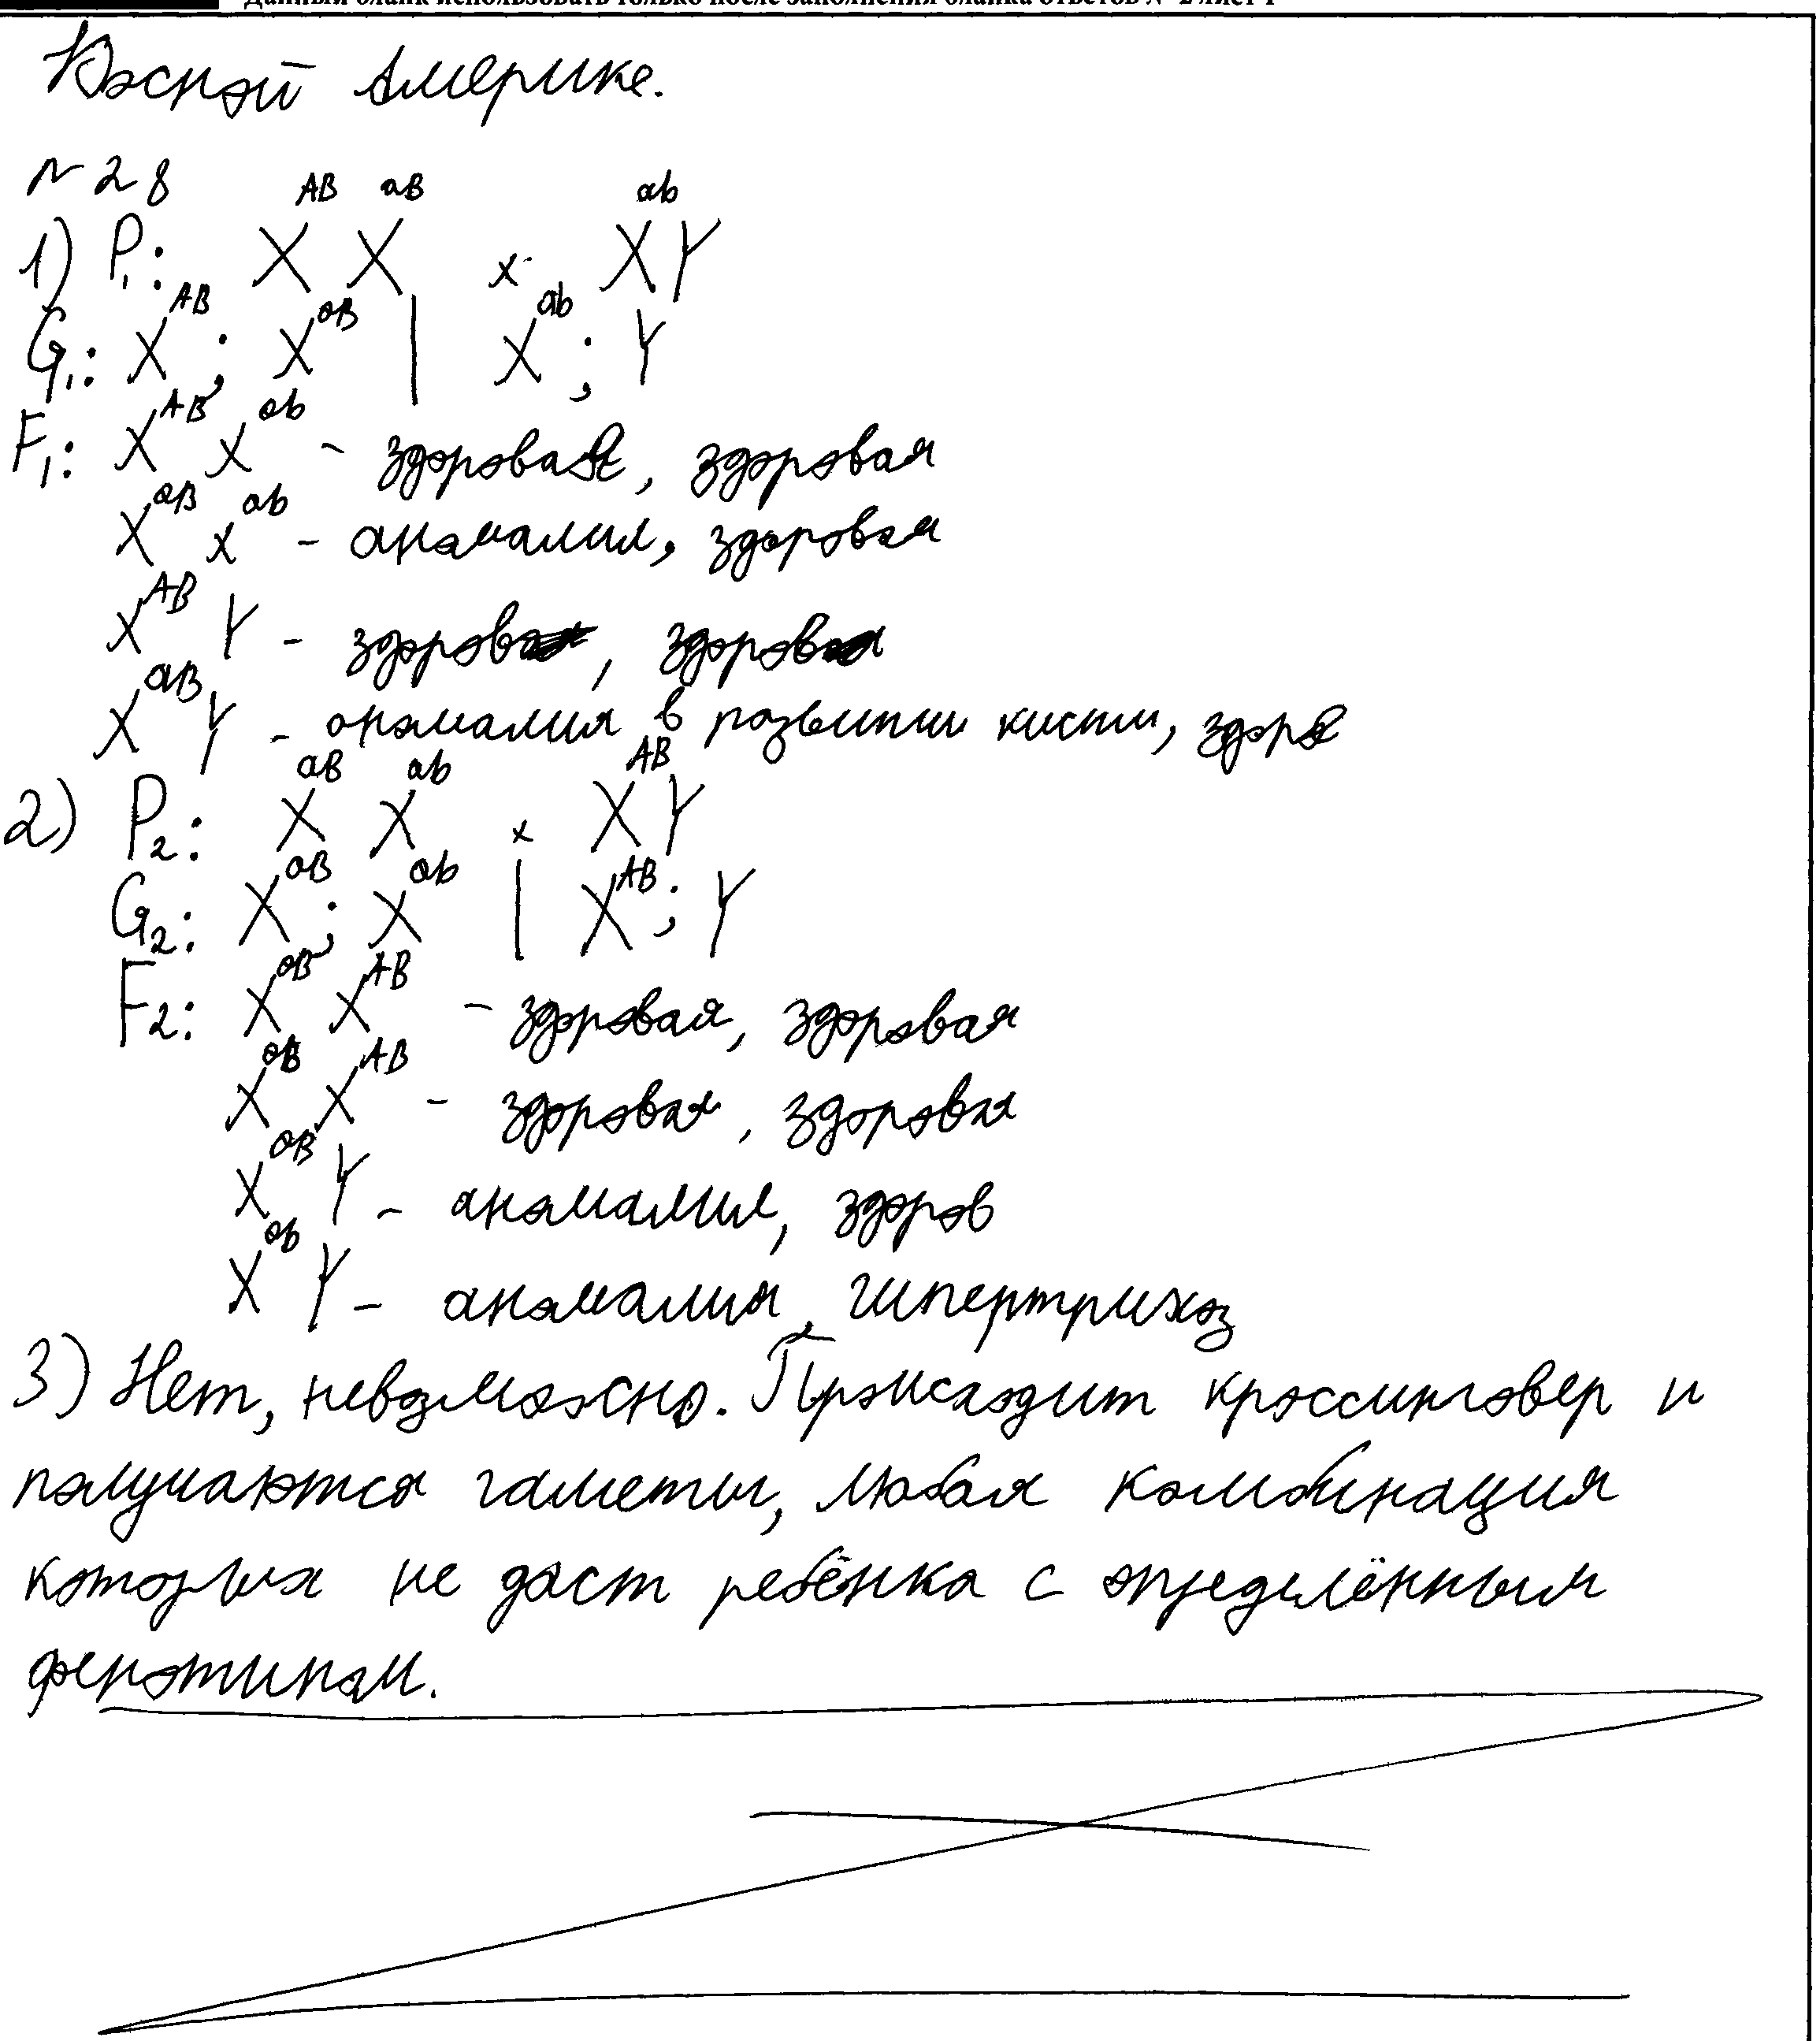 Данный бланк использовать только после заполнения бланка ответов № 2 лист 1
Южной Америке.
№28
1) P₁: X^AB X^aB x X^ab Y
G₁: X^AB; X^aB | X^ab; Y
F₁: X^AB X^ab - здоровая, здоровая
X^aB X^ab - аномалия, здоровая
X^AB Y - здоров, здоров
X^aB Y - аномалия в развитии кисти, здоров
2) P₂: X^aB X^ab x X^AB Y
G₂: X^aB; X^ab | X^AB; Y
F₂: X^aB X^AB - здоровая, здоровая
X^aB X^AB - здоровая, здоровая
X^aB Y - аномалия, здоров
X^ab Y - аномалия, гипертрихоз
3) Нет, невозможно. Происходит кроссинговер и
получаются гаметы, любая комбинация
которых не даст ребёнка с определённым
фенотипом.